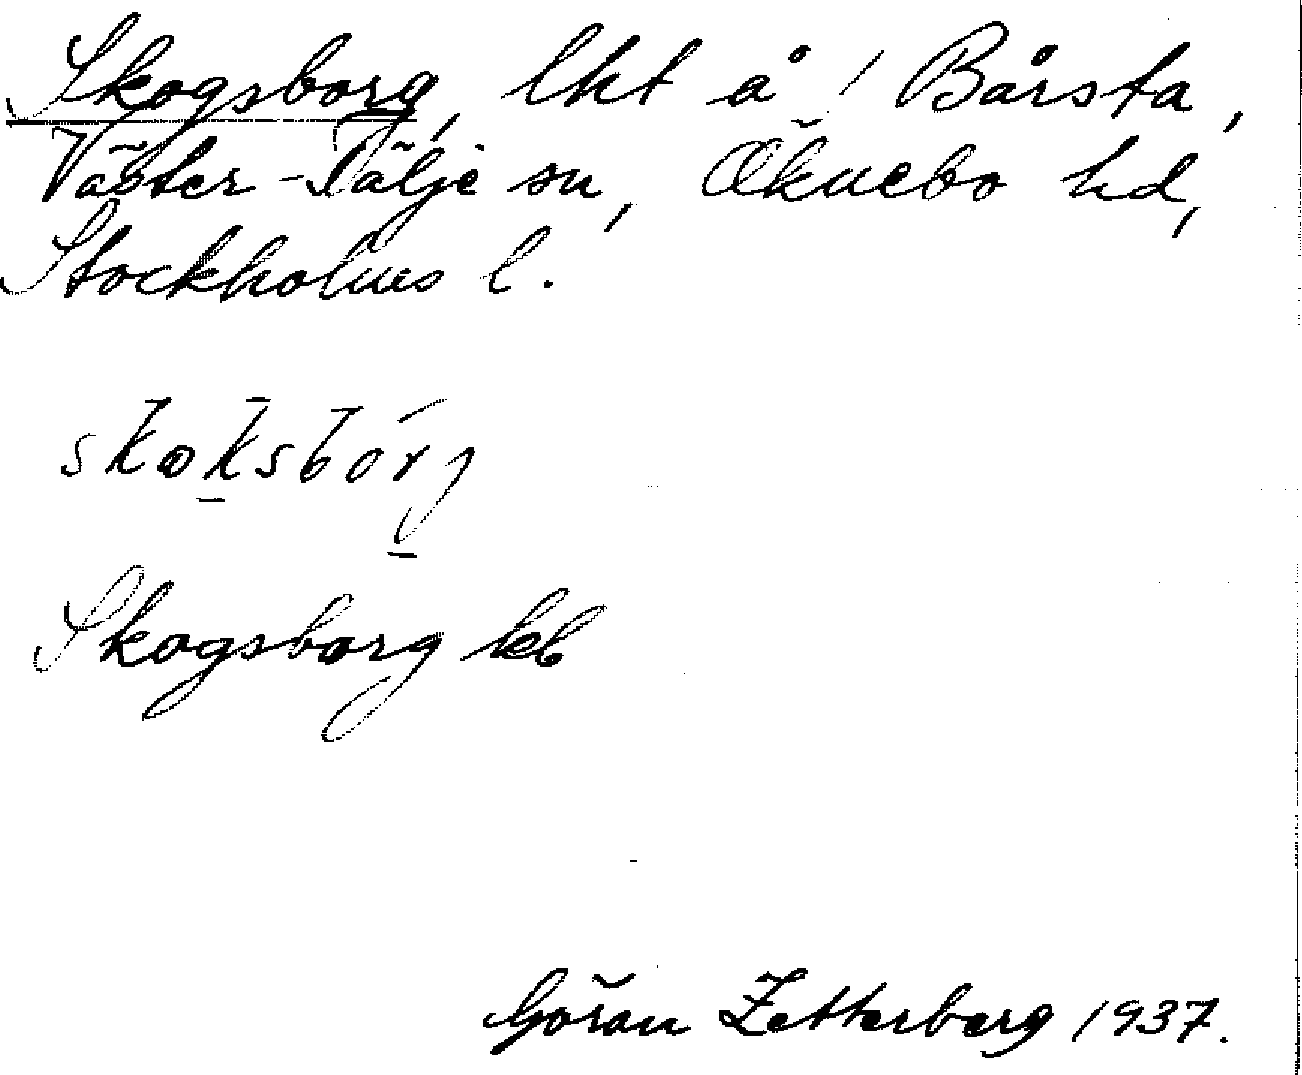 Skogsborg, lht å / Bårsta,
Väster-Tälje sn, Öknebo hd,
Stockholms l.
skoksborj
Skogsborg kb
Göran Zetterberg 1937.